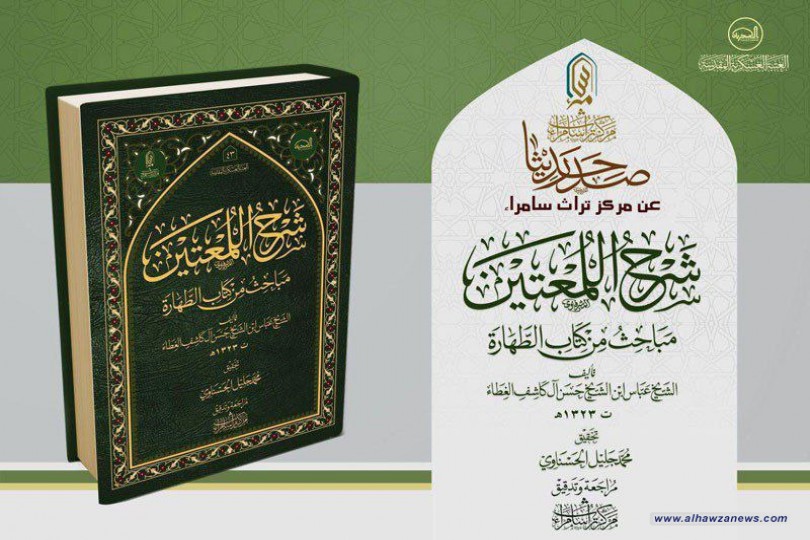 العتبة العسكرية المقدسة
مركز تراث سامراء
صدر حديثا
عن مركز تراث سامراء
شرح اللمعتين
مباحث من كتاب الطهارة
تأليف
الشيخ عباس ابن الشيخ حسن آل كاشف الغطاء
ت ١٣٢٣هـ
تحقيق
محمد جليل الحسناوي
مراجعة وتدقيق
مركز تراث سامراء
www.alhawzanews.com
٤٣
العتبة العسكرية المقدسة
شرح اللمعتين
مباحث من كتاب الطهارة
تأليف
الشيخ عباس ابن الشيخ حسن آل كاشف الغطاء
ت ١٣٢٣هـ
تحقيق
محمد جليل الحسناوي
مراجعة وتدقيق
مركز تراث سامراء